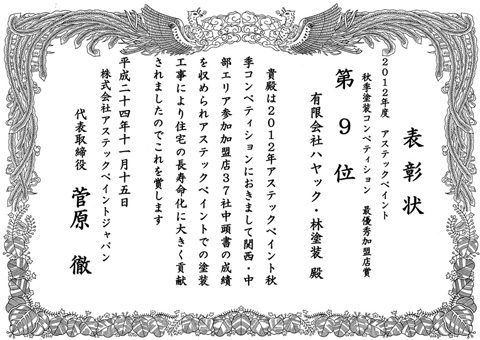 表彰状
2012年度 アステックペイント
秋季塗装コンペティション 最優秀加盟店賞
第9位
有限会社ハヤック・林塗装 殿
貴殿は2012年アステックペイント秋
季コンペティションにおきまして関西・中
部エリア参加加盟店37社中頭書の成績
を収められアステックペイントでの塗装
工事により住宅の長寿命化に大きく貢献
されましたのでこれを賞します
平成二十四年十一月十五日
株式会社アステックペイントジャパン
代表取締役 菅原 徹